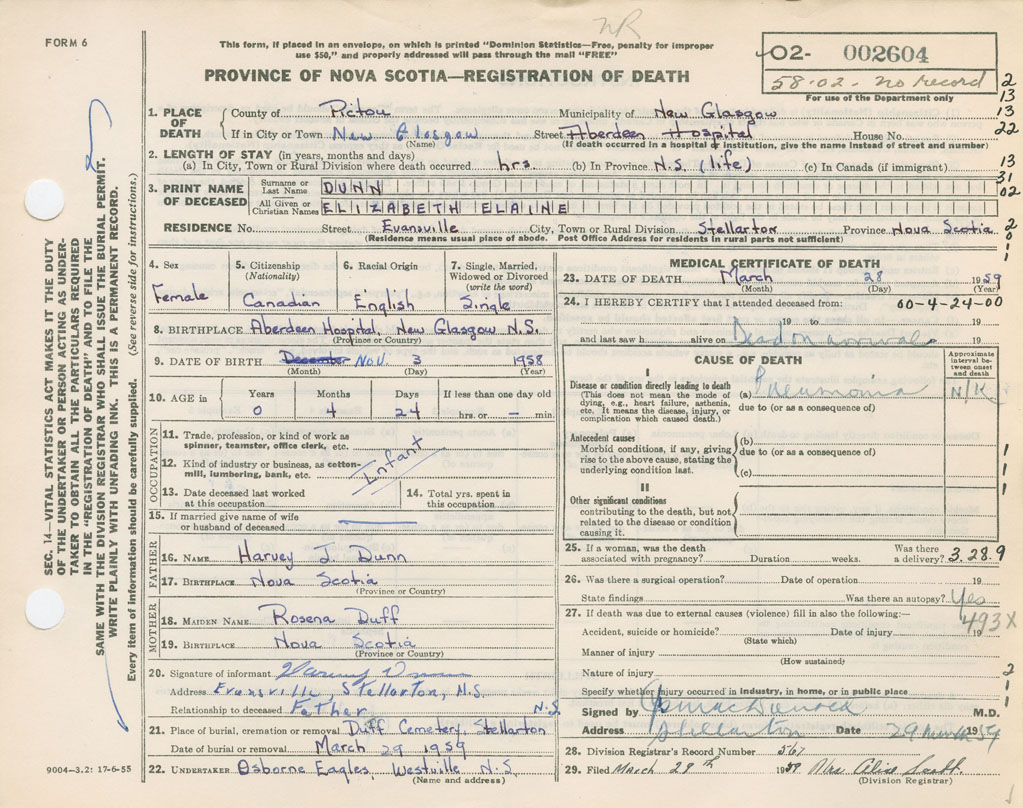 NR
FORM 6
This form, if placed in an envelope, on which is printed "Dominion Statistics—Free, penalty for improper
use $50," and properly addressed will pass through the mail "FREE"
PROVINCE OF NOVA SCOTIA—REGISTRATION OF DEATH
02- 002604
58-02- no record
For use of the Department only
2
13
13
22
13
31
02
2
0
1
1. PLACE OF DEATH
County of Pictou Municipality of New Glasgow
If in City or Town New Glasgow Street Aberdeen Hospital House No.
(Name) (If death occurred in a hospital or institution, give the name instead of street and number)
2. LENGTH OF STAY (in years, months and days)
(a) In City, Town or Rural Division where death occurred hrs (b) In Province N.S. (life) (c) In Canada (if immigrant)
3. PRINT NAME OF DECEASED
Surname or Last Name DUNN
All Given or Christian Names ELIZABETH ELAINE
RESIDENCE No. Street Evansville City, Town or Rural Division Stellarton Province Nova Scotia
(Residence means usual place of abode. Post Office Address for residents in rural parts not sufficient)
4. Sex Female
5. Citizenship (Nationality) Canadian
6. Racial Origin English
7. Single, Married, Widowed or Divorced (write the word) Single
8. BIRTHPLACE Aberdeen Hospital, New Glasgow N.S.
(Province or Country)
9. DATE OF BIRTH December Nov. 3 1958
(Month) (Day) (Year)
10. AGE in Years Months Days If less than one day old
0 4 24 hrs. or — min.
OCCUPATION
11. Trade, profession, or kind of work as
spinner, teamster, office clerk, etc.
12. Kind of industry or business, as cotton-
mill, lumbering, bank, etc.
Infant
13. Date deceased last worked
at this occupation
14. Total yrs. spent in
this occupation
15. If married give name of wife
or husband of deceased
FATHER
16. NAME Harvey J. Dunn
17. BIRTHPLACE Nova Scotia
(Province or Country)
MOTHER
18. MAIDEN NAME Rosena Duff
19. BIRTHPLACE Nova Scotia
(Province or Country)
20. Signature of informant Harvey Dunn
Address Evansville, Stellarton, N.S.
Relationship to deceased Father N.S.
21. Place of burial, cremation or removal Duff Cemetery, Stellarton
Date of burial or removal March 29 1959
22. UNDERTAKER Osborne Eagles, Westville N.S.
(Name and address)
MEDICAL CERTIFICATE OF DEATH
23. DATE OF DEATH March 28 1959
(Month) (Day) (Year)
24. I HEREBY CERTIFY that I attended deceased from: 00-4-24-00
19 to 19
and last saw h alive on Dead on arrival 19
CAUSE OF DEATH
Approximate interval between onset and death
I
Disease or condition directly leading to death
(This does not mean the mode of
dying, e.g., heart failure, asthenia,
etc. It means the disease, injury, or
complication which caused death.)
(a) Pneumonia N/K
due to (or as a consequence of)
Antecedent causes
Morbid conditions, if any, giving
rise to the above cause, stating the
underlying condition last.
(b)
due to (or as a consequence of)
(c)
1
1
1
II
Other significant conditions
contributing to the death, but not
related to the disease or condition
causing it.
25. If a woman, was the death
associated with pregnancy? Duration weeks. Was there
a delivery? 3.28.9
26. Was there a surgical operation? Date of operation 19
State findings Was there an autopsy? Yes
27. If death was due to external causes (violence) fill in also the following:—
493X
Accident, suicide or homicide? Date of injury 19
(State which)
Manner of injury
(How sustained)
Nature of injury 2
1
1
Specify whether injury occurred in industry, in home, or in public place
Signed by M.D.
Address Stellarton Date 29 March 1959
28. Division Registrar's Record Number 567
29. Filed March 29th 1959 Mrs. Alice Scott.
(Division Registrar)
SEC. 14—VITAL STATISTICS ACT MAKES IT THE DUTY
OF THE UNDERTAKER OR PERSON ACTING AS UNDER-
TAKER TO OBTAIN ALL THE PARTICULARS REQUIRED
IN THE "REGISTRATION OF DEATH" AND TO FILE THE
SAME WITH THE DIVISION REGISTRAR WHO SHALL ISSUE THE BURIAL PERMIT.
WRITE PLAINLY WITH UNFADING INK. THIS IS A PERMANENT RECORD.
Every item of information should be carefully supplied. (See reverse side for instructions.)
9004-3.2: 17-6-55